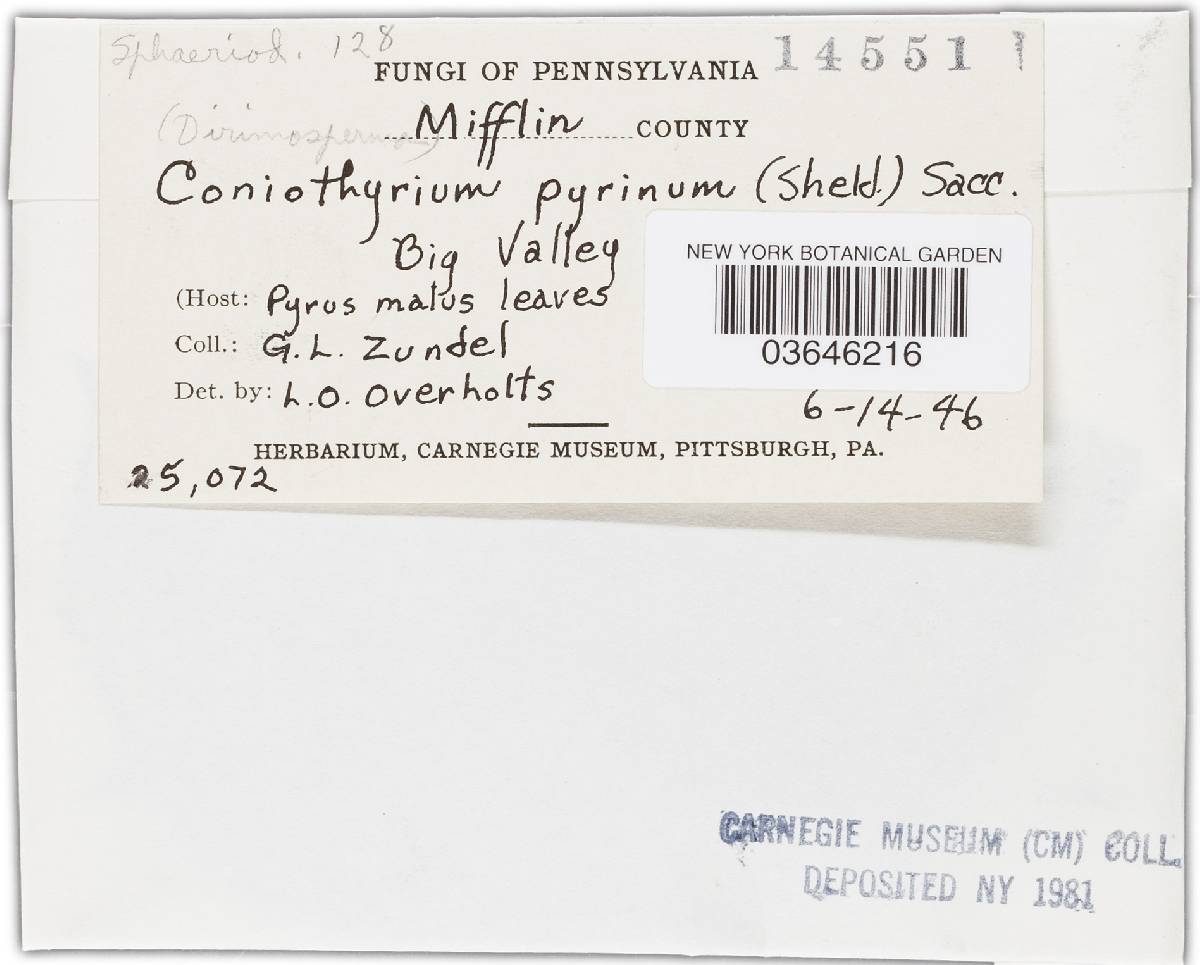 Sphaeriod. 128
14551
FUNGI OF PENNSYLVANIA
(Dirimosperma)
Mifflin COUNTY
Coniothyrium pyrinum (Sheld.) Sacc.
Big Valley
NEW YORK BOTANICAL GARDEN
03646216
(Host: Pyrus malus leaves
Coll.: G. L. Zundel
Det. by: L. O. Overholts
6-14-46
HERBARIUM, CARNEGIE MUSEUM, PITTSBURGH, PA.
25,072
CARNEGIE MUSEUM (CM) COLL.
DEPOSITED NY 1981